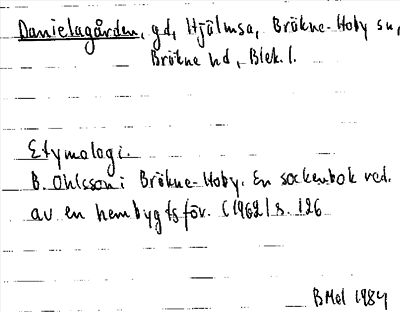 Danielagården, gd, Hjälmsa, Bräkne-Hoby sn,
Bräkne hd, Blek. l.
Etymologi.
B. Ohlsson i Bräkne-Hoby. En sockenbok red.
av en hembygdsför. (1962) s. 126
BMel 1984